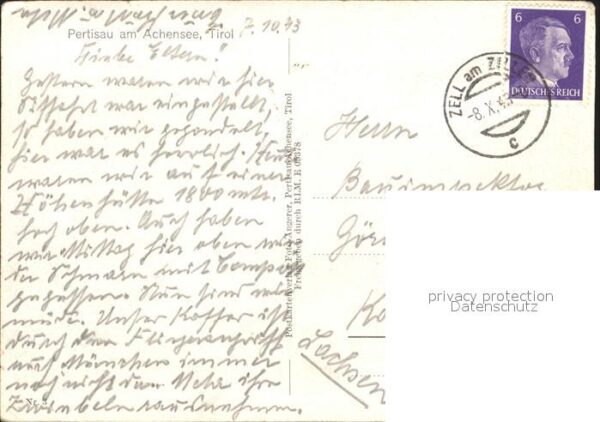 7.10.43
Pertisau am Achensee, Tirol
Liebe Eltern!
Gestern waren wir hier
Schiffahrt war eingestellt,
so haben wir gegondelt,
hier war es herrlich. Heute
waren wir auf einer
Höhenhütte 1800 mtr.
hoch oben. Auch haben
wir Mittag hier oben
gegessen. Nun sind wir
müde. Unser Koffer ist
durch den Fliegerangriff
auf München immer
noch nicht da
Zwiebeln
Nr. 3
Postkartenverlag Foto-Angerer, Pertisau-Achensee, Tirol
Freigegeben durch R.L.M. E 09378
6 6
DEUTSCHES REICH
ZELL am ZILLER
-8.X.43
c
Herrn
Bauinspektor
Sachsen
privacy protection
Datenschutz